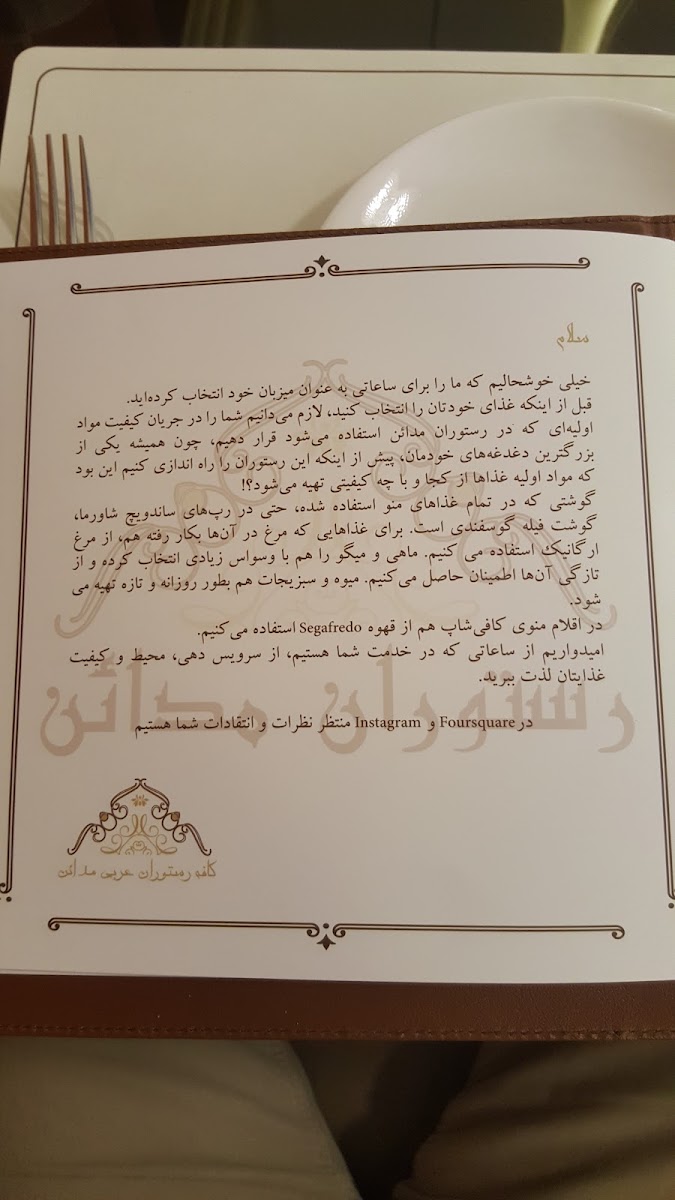 سلام
خیلی خوشحالیم که ما را برای ساعاتی به عنوان میزبان خود انتخاب کرده‌اید.
قبل از اینکه غذای خودتان را انتخاب کنید، لازم می‌دانیم شما را در جریان کیفیت مواد
اولیه‌ای که در رستوران مدائن استفاده می‌شود قرار دهیم، چون همیشه یکی از
بزرگترین دغدغه‌های خودمان، پیش از اینکه این رستوران را راه اندازی کنیم این بود
که مواد اولیه غذاها از کجا و با چه کیفیتی تهیه می‌شود؟!
گوشتی که در تمام غذاهای منو استفاده شده، حتی در رپ‌های ساندویچ شاورما،
گوشت فیله گوسفندی است. برای غذاهایی که مرغ در آن‌ها بکار رفته هم، از مرغ
ارگانیک استفاده می کنیم. ماهی و میگو را هم با وسواس زیادی انتخاب کرده و از
تازگی آن‌ها اطمینان حاصل می‌کنیم. میوه و سبزیجات هم بطور روزانه و تازه تهیه می
شود.
در اقلام منوی کافی‌شاپ هم از قهوه Segafredo استفاده می‌کنیم.
امیدواریم از ساعاتی که در خدمت شما هستیم، از سرویس دهی، محیط و کیفیت
غذایتان لذت ببرید.
رستوران مدائن
در Foursquare و Instagram منتظر نظرات و انتقادات شما هستیم
کافه رستوران عربی مدائن